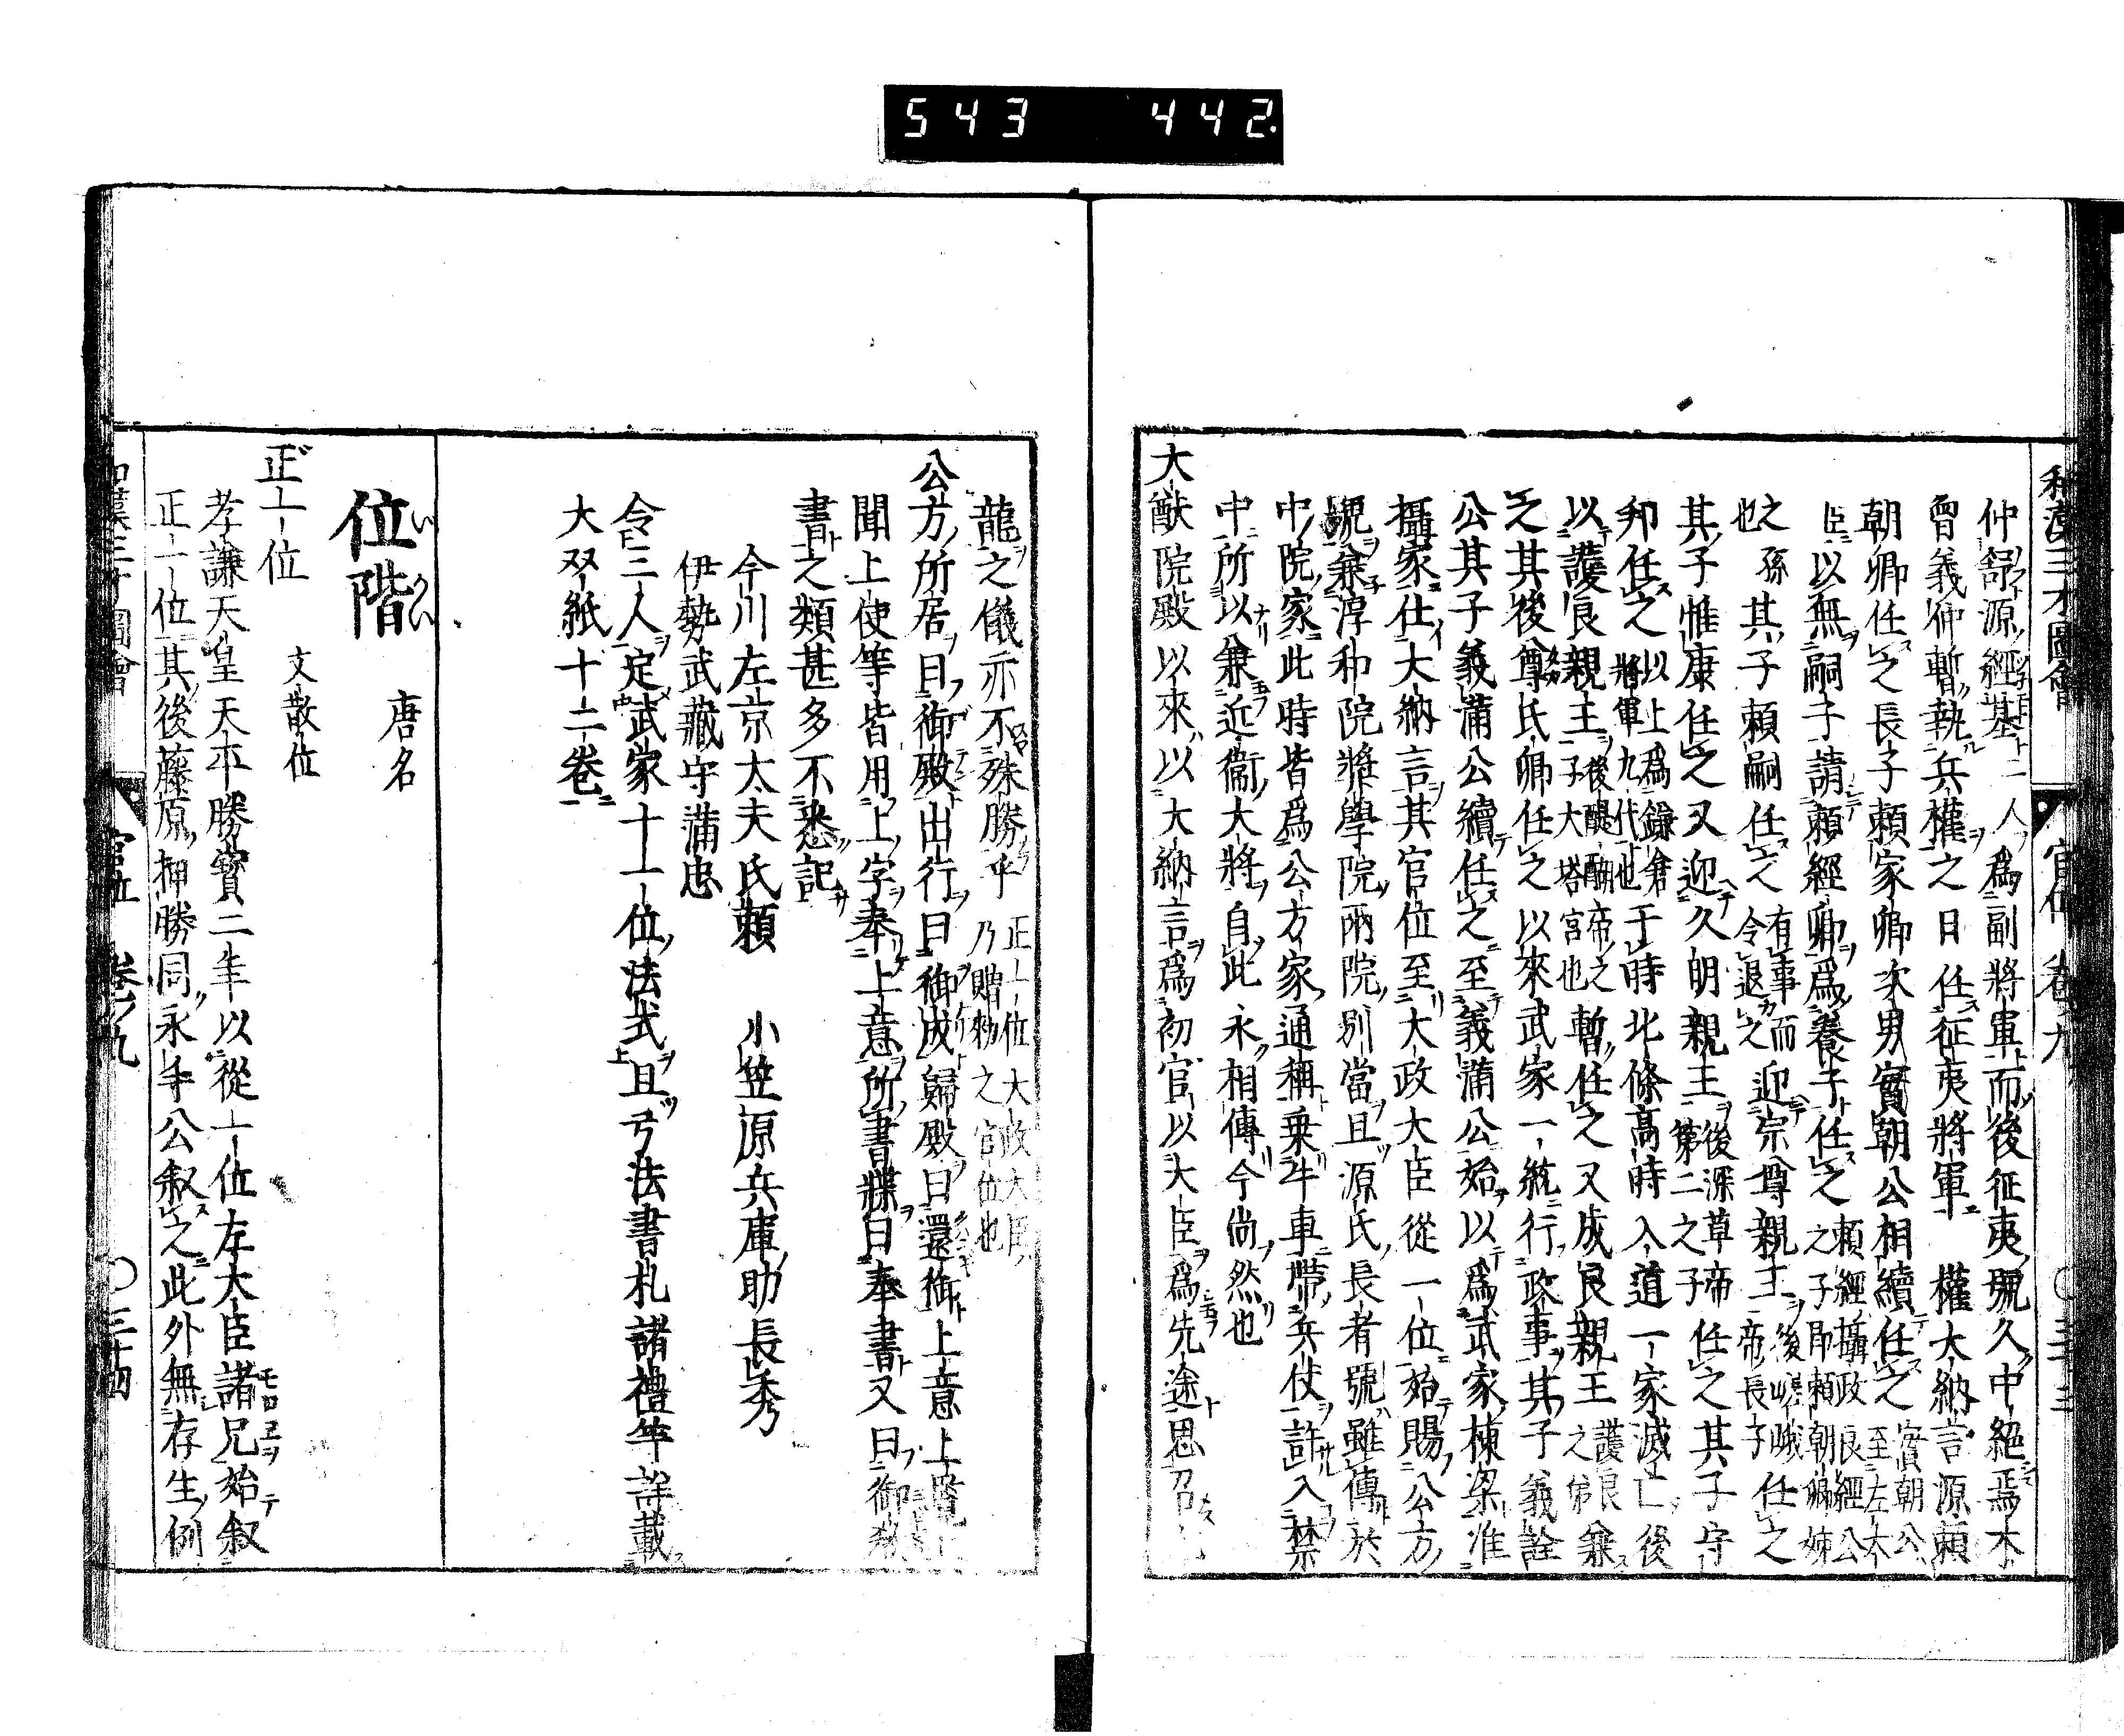 543 442.
和漢三才圖會 官位 卷九 ○三十三
仲舒源經基二人爲副將軍而後征夷號久中絶焉木
曾義仲暫執兵權之日任征夷將軍 權大納言源頼
朝卿任之長子頼家卿次男實朝公相續任之 實朝公至左大
臣以無嗣子請頼經卿爲養子任之 頼經攝政良經公之子即頼朝卿姊
之孫也 其子頼嗣任之 有事而令退之 迎宗尊親王 後嵯峨帝長子 任之
其子惟康任之又迎久明親王 後深草帝第二之子 任之其子守
邦任之 以上爲鎌倉將軍九代也 于時北條高時入道一家滅亡後
以護良親王 後醍醐帝之子大塔宮也 暫任之又成良親王 護良之弟 兼
之其後尊氏卿任之以來武家一統行政事其子義詮
公其子義滿公續任之至義滿公始以爲武家棟梁准
攝家仕大納言其官位至大政大臣從一位始賜公方
號兼淳和院奬學院兩院別當且源氏長者號雖傳於
中院家此時皆爲公方家通稱乗牛車帶兵仗許入禁
中所以兼近衞大將自此永相傳今尚然也
大猷院殿以來以大納言爲初官以大臣爲先途思召
龍之儀亦不殊勝乎 正一位大政大臣乃贈勅之官位也
公方所居曰御殿出行曰御成歸殿曰還御上意上覽
聞上使等皆用上字奉上意所書牒曰奉書又曰御教
書之類甚多不悉記
今川左京大夫氏頼 小笠原兵庫助長秀
伊勢武藏守滿忠
令三人定武家十一位法式且弓法書札諸禮等詳載
大双紙十二卷
位階 いかい 唐名
正一位 文散位
孝謙天皇天平勝寳二年以從一位左大臣諸兄始叙 モロヱヲ
正一位其後藤原押勝同永手公叙之此外無存生例
和漢三才圖會 官位 卷九 ○三十四